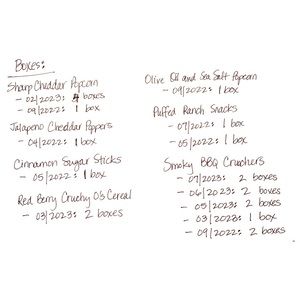 Boxes:
Sharp Cheddar Popcorn
- 02/2023: 4 boxes
- 09/2022: 1 box
Jalapeno Cheddar Poppers
- 04/2022: 1 box
Cinnamon Sugar Sticks
- 05/2022: 1 box
Red Berry Crunchy O's Cereal
- 03/2023: 2 boxes
Olive Oil and Sea Salt Popcorn
- 09/2022: 1 box
Puffed Ranch Snacks
- 07/2022: 1 box
- 05/2022: 1 box
Smoky BBQ Crunchers
- 07/2023: 2 boxes
- 06/2023: 2 boxes
- 05/2023: 2 boxes
- 03/2023: 1 box
- 09/2022: 2 boxes